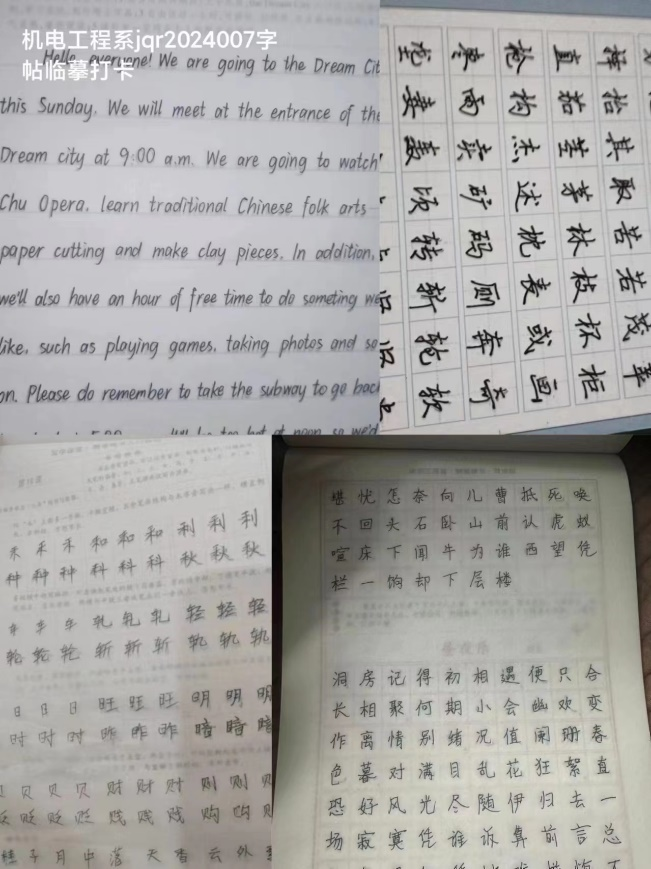 机电工程系jqr2024007字
帖临摹打卡
Hello, everyone! We are going to the Dream Cit
this Sunday. We will meet at the entrance of the
Dream city at 9:00 a.m. We are going to watch
Chu Opera, learn traditional Chinese folk arts
paper cutting and make clay pieces. In addition,
we'll also have an hour of free time to do someting we
like, such as playing games, taking photos and so
on. Please do remember to take the subway to go bac
择 抬 其 取 苦 若 茂 革
直 茄 茎 茅 林 枝 杯 柜
枪 构 杰 述 枕 表 或 画
枣 雨 卖 矿 码 厕 奔 奇
垄 妻 轰 顷 转 斩 软
禾 禾 禾 和 和 和 利 利 利
种 种 种 科 科 科 秋 秋 秋
车 车 车 轧 轧 轧 轻 轻 轻
轮 轮 轮 斩 斩 斩 轨 轨 轨
日 日 日 旺 旺 旺 明 明 明
时 时 时 昨 昨 昨 暗 暗 暗
贝 贝 贝 财 财 财 则 则 则
贬 贬 贬 贱 贱 贱 购 购 购
桂 子 月 中 落 天 香 云 外
堪 忧 怎 奈 向 儿 曹 抵 死 唤
不 回 头 石 卧 山 前 认 虎 蚁
喧 床 下 闻 牛 为 谁 西 望 凭
栏 一 饷 却 下 层 楼
洞 房 记 得 初 相 遇 便 只 合
长 相 聚 何 期 小 会 幽 欢 变
作 离 情 别 绪 况 值 阑 珊 春
色 暮 对 满 目 乱 花 狂 絮 直
恐 好 风 光 尽 随 伊 归 去 一
场 寂 寞 凭 谁 诉 算 前 言 总